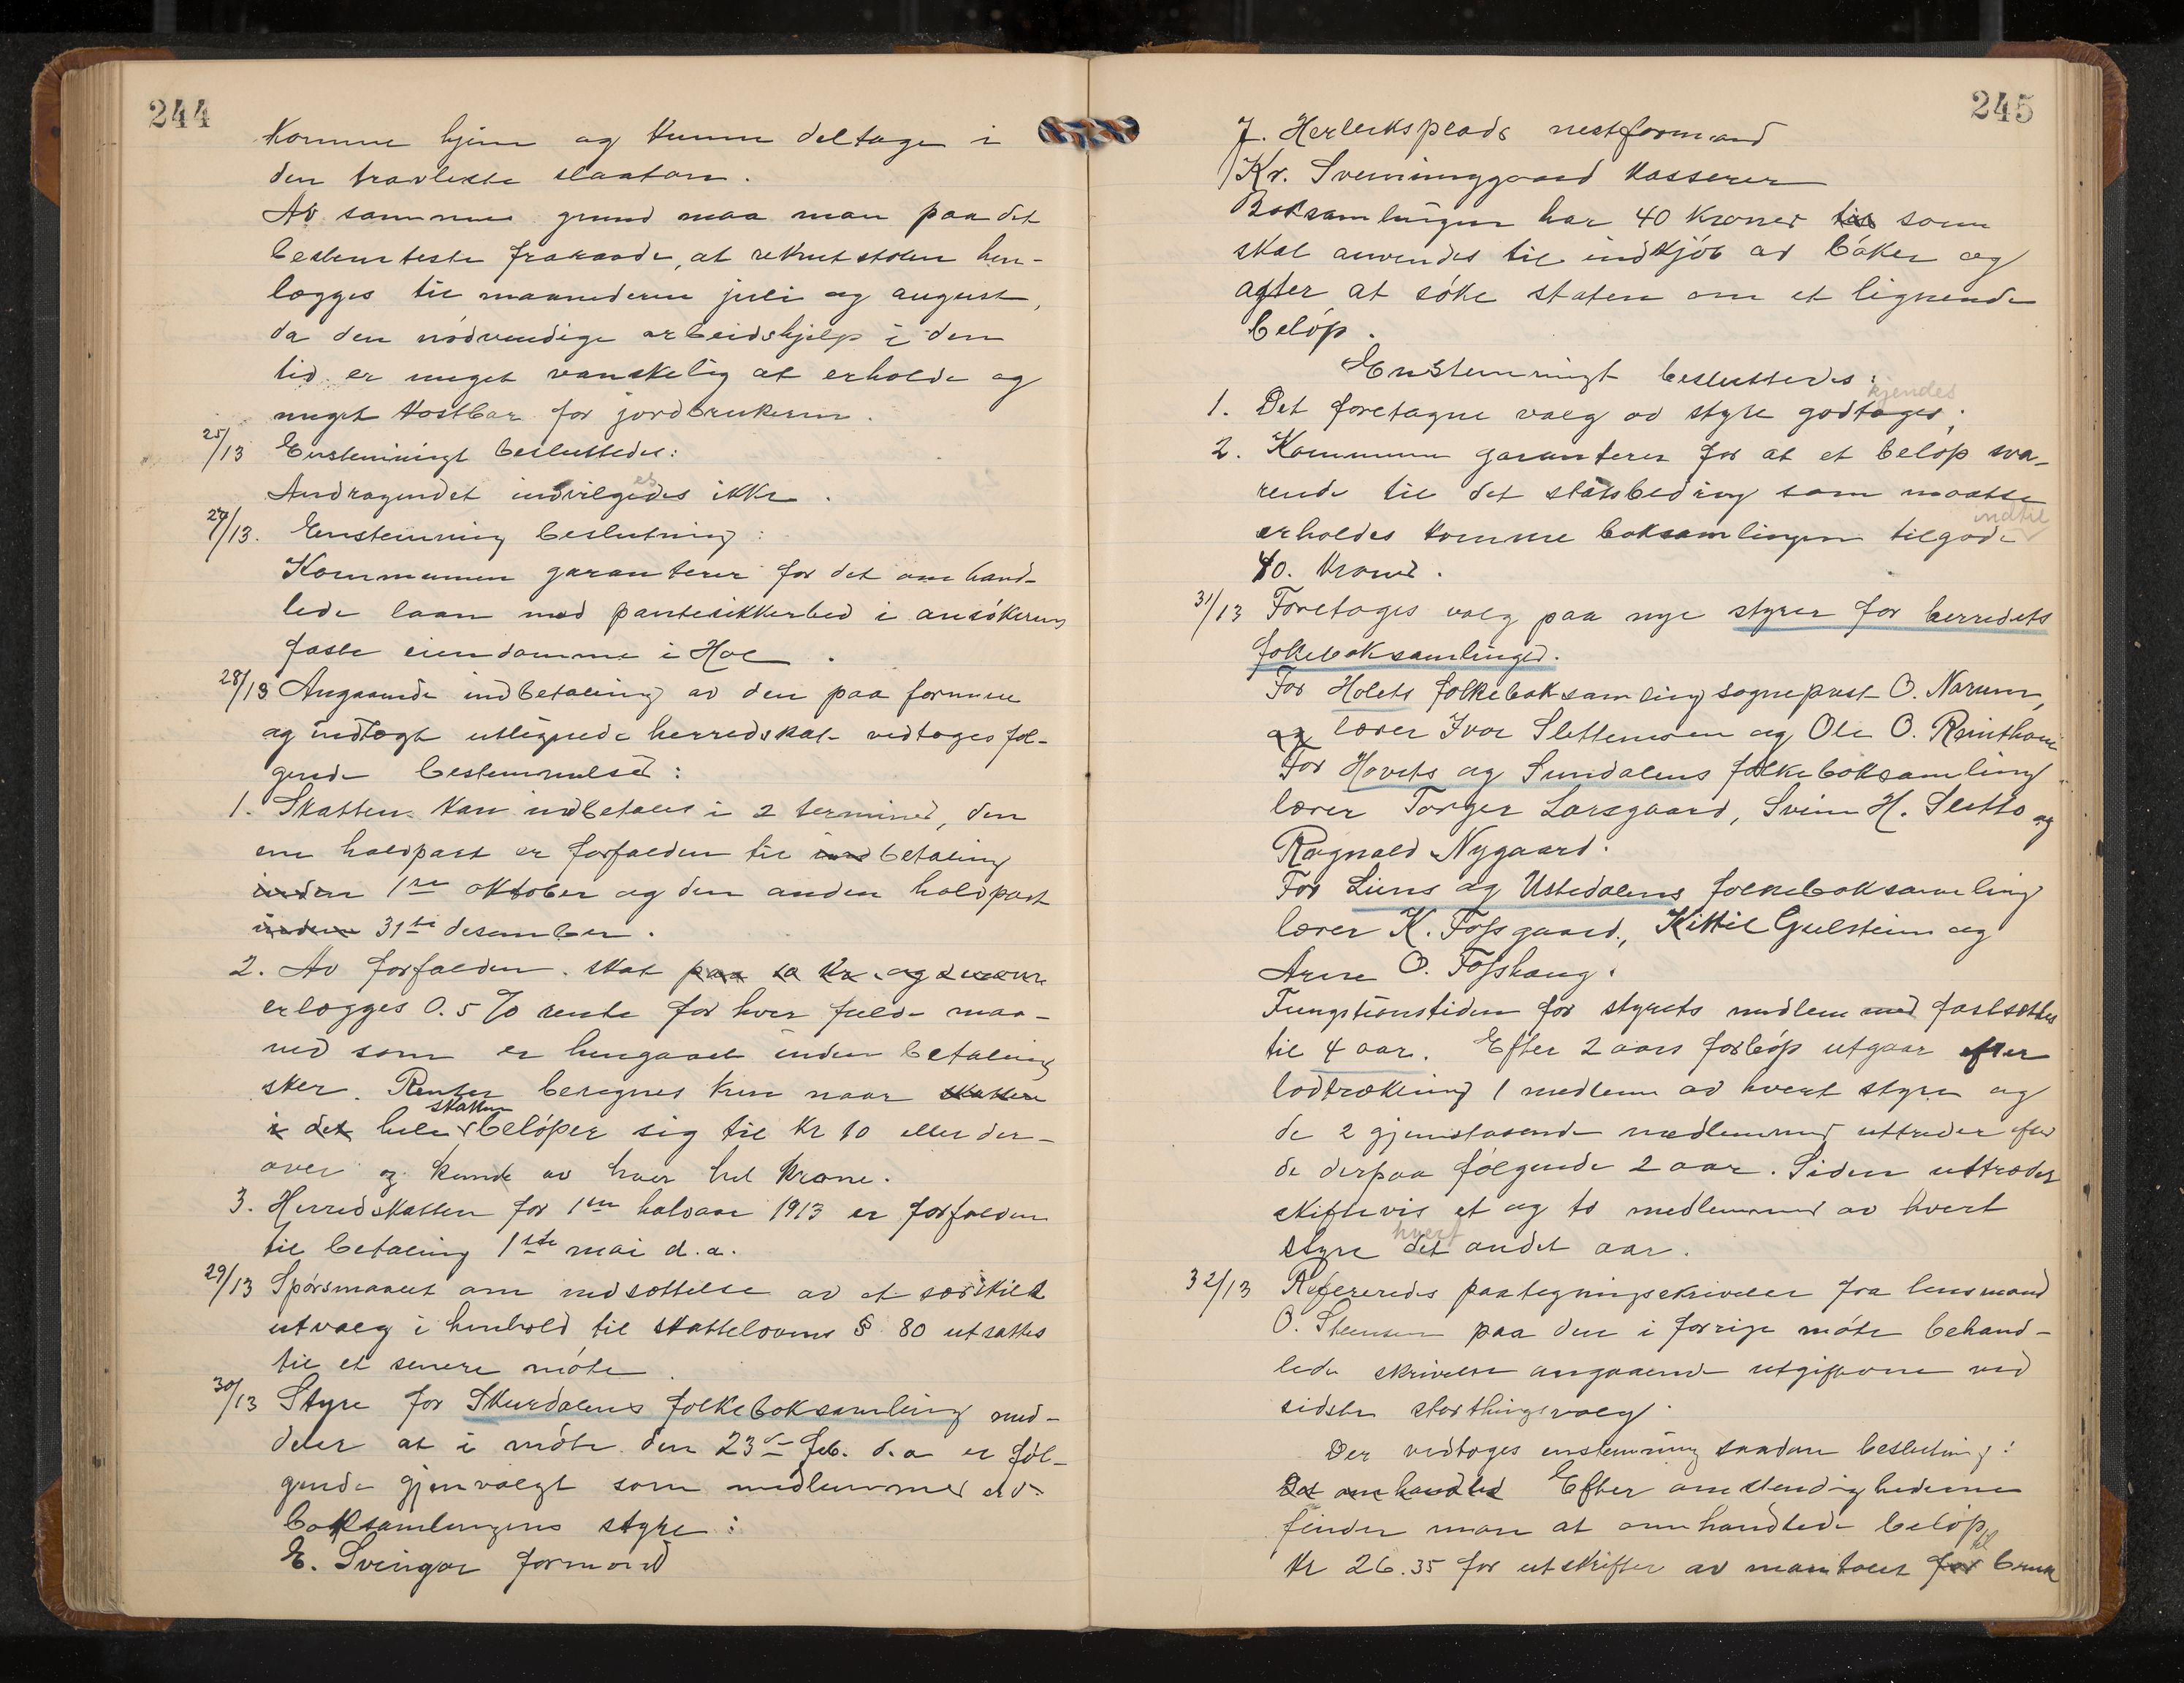 244
komme hjem og kunne deltage i
den travleste slaatan.
Av samme grund maa man paa det
bestemteste fraraade, at rekrutskolen hen-
lægges til maanederne juli og august,
da den nödvendige arbeidshjelp i den
tid er meget vanskelig at erholde og
meget kostbar for jordbrukerne.
25/13 Enstemmigt besluttedes:
Andragendet indvilgedes ikke.
27/13. Enstemmig beslutning:
Kommunen garanterer for det omhand-
lede laan mod pantesikkerhed i ansökerens
faste eiendomme i Hol.
28/13 Angaaende indbetaling av den paa formue
og indtægt utlignede herredskat vedtoges föl-
gende bestemmelser:
1. Skatten kan indbetales i 2 terminer, den
ene halvpart er forfalden til ind betaling
inden 1ste oktober og den anden halvpart
inden 31te desember.
2. Av forfalden skat paa 10 kr. og derover
erlægges 0.5 % rente for hver fulde maa-
ned som er hengaaet inden betaling
sker. Renter beregnes kun naar skatten
i det hele skatten belöper sig til kr 10 eller der-
over og kunde av hver hel krone.
3. Herredskatten for 1ste halvaar 1913 er forfalden
til betaling 1ste mai d.a.
29/13 Spörsmaalet om nedsættelse av et særskilt
utvalg i henhold til skattelovens § 80 utsattes
til et senere möte.
30/13 Styre for Skurdalens folkeboksamling med-
deler at i möte den 23de feb. d.a er föl-
gende gjenvalgt som medlemmer av
boksamlingens styre:
E. Svingar formand
245
J. Herleiksplads nestformand
Kr. Sveininggaard kasserer
Boksamlingen har 40 kroner til som
skal anvendes til indkjöb av böker og
agter at söke staten om et lignende
belöp.
Enstemmigt besluttedes:
1. Det foretagne valg av styre godtages kjendes;
2. Kommunen garanterer for at et belöp sva-
rende til det statsbedrag som maatte
erholdes komme boksamlingen tilgode indtil
40. kroner.
31/13 Foretoges valg paa nye styrer for herredets
folkeboksamlinger.
For Holets folkeboksamling sogneprest O. Narum,
og lærer Ivar Slettemoen og Ole O. Reinthon
For Hovets og Sundalens folkeboksamling
lærer Torger Larsgaard, Svein H. Sletto og
Ragnald Nygaard.
For Liens og Ustedalens folkeboksamling
lærer K. Fossgaard, Kittil Gulstein og
Arne O. Fosshaug.
Fungtionstiden for styrets medlem med fastsættes
til 4 aar. Efter 2 aars forlöp utgaar efter
lodtrækning 1 medlem av hvert styre og
de 2 gjenstaaende medlemmer uttræder efter
de derpaa fölgende 2 aar. Siden uttræder
skiftevis et og to medlemmer av hvert
styre det hvert andet aar.
32/13 Refereredes paategningsskrivelse fra lensmand
O. Steensen paa den i forrige möte behand-
lede skrivelse angaaende utgifterne ved
sidste storthingsvalg.
Der vedtoges enstemmig saadan beslutning:
Det omhandled Efter omstendighederne
finder man at omhandlede belöp
kr 26.35 for utskrifter av manntalet for til bruk